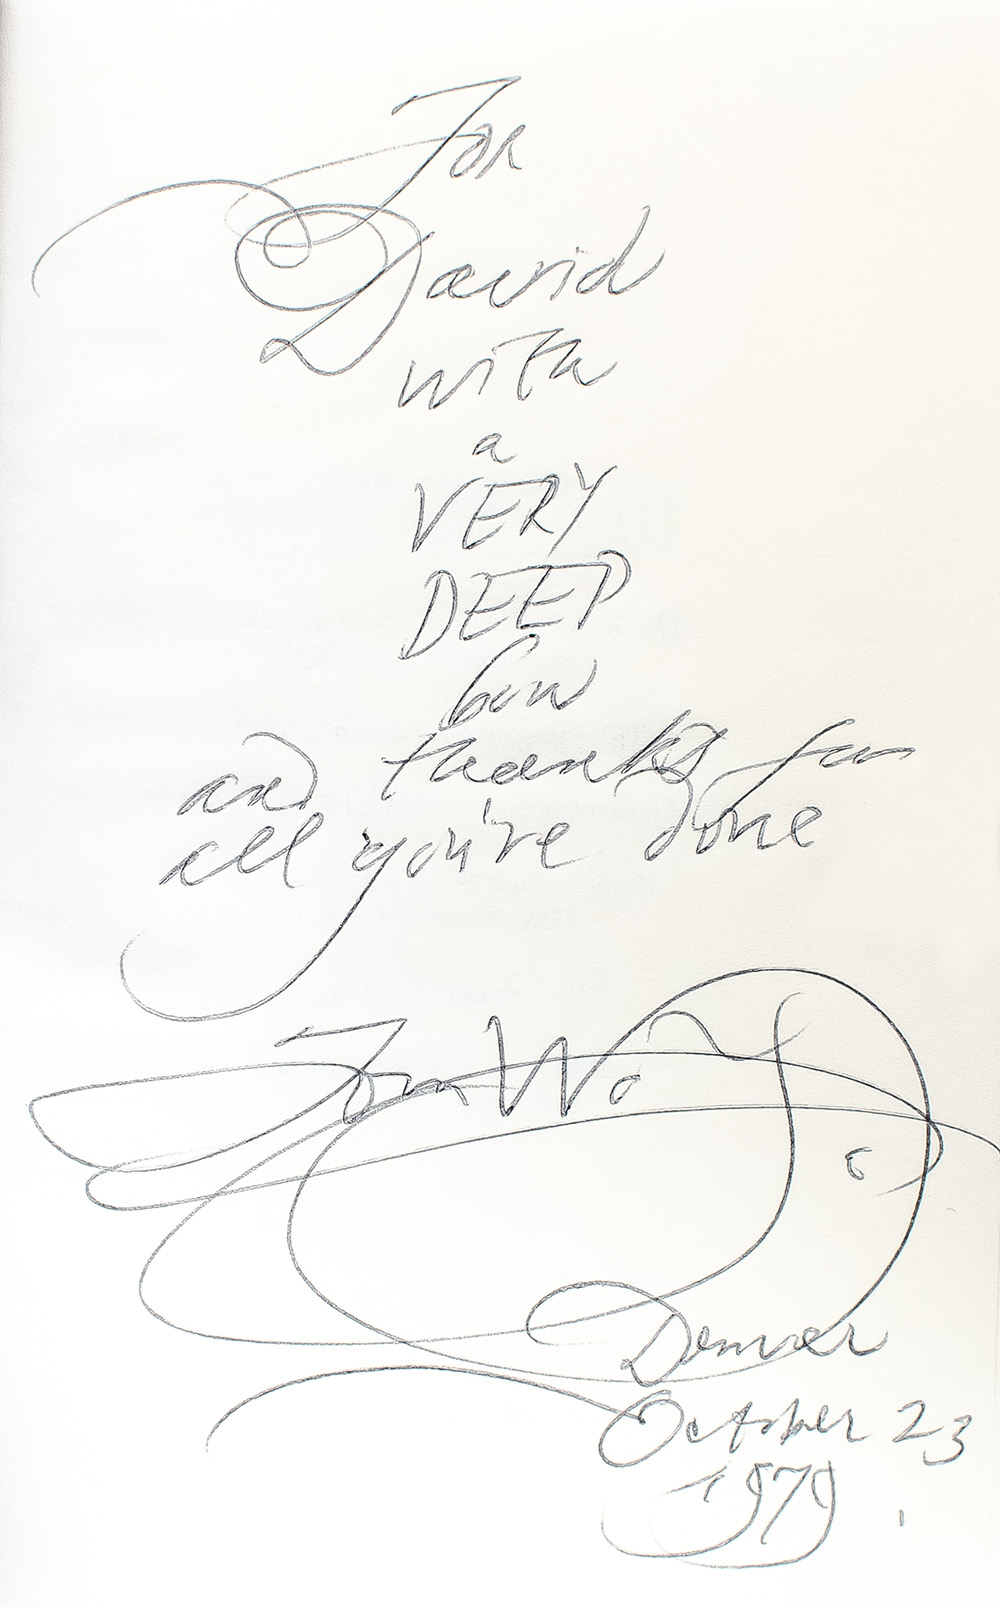 For
David
with
a
VERY
DEEP
bow
and thanks for
all you've done
Tom Wolfe
Denver
October 23
1979